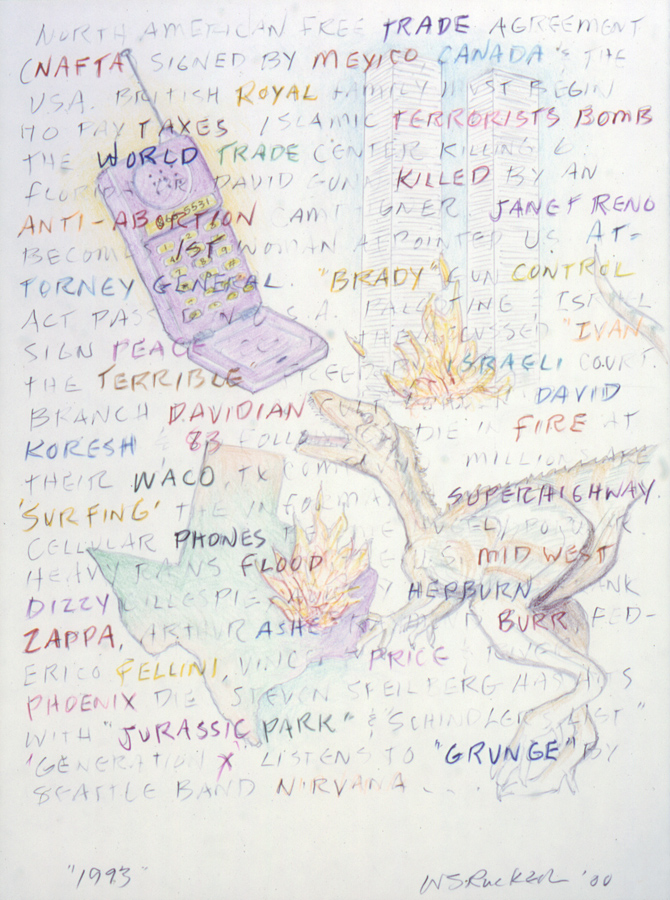 NORTH AMERICAN FREE TRADE AGREEMENT
(NAFTA) SIGNED BY MEXICO, CANADA & THE
USA. BRITISH ROYAL FAMILY MUST BEGIN
TO PAY TAXES ISLAMIC TERRORISTS BOMB
THE WORLD TRADE CENTER KILLING 6.
FLORIDA DAVID GUNN KILLED BY AN
ANTI-ABORTION JANET RENO
BECOMES 1ST WOMAN APPOINTED U.S. AT-
TORNEY GENERAL. "BRADY" GUN CONTROL
ACT PASSED IN U.S.A. ISRAEL
SIGN PEACE THE ACCUSSED "IVAN
THE TERRIBLE ISRAELI COURT.
BRANCH DAVIDIAN CULT DAVID
KORESH & 83 DIE IN FIRE AT
THEIR WACO, TX MILLIONS ARE
'SURFING' THE SUPERHIGHWAY.
CELLULAR PHONES
HEAVY RAINS FLOOD U.S. MIDWEST
DIZZY GILLESPIE, HEPBURN
ZAPPA, ARTHUR ASHE BURR, FED-
ERICO FELLINI, VINCENT PRICE &
PHOENIX DIE STEVEN SPEILBERG HAS HITS
WITH "JURASSIC PARK" & SCHINDLER'S LIST"
"GENERATION X" LISTENS TO "GRUNGE" BY
SEATTLE BAND NIRVANA ....
"1993" WS.RUCKER '00